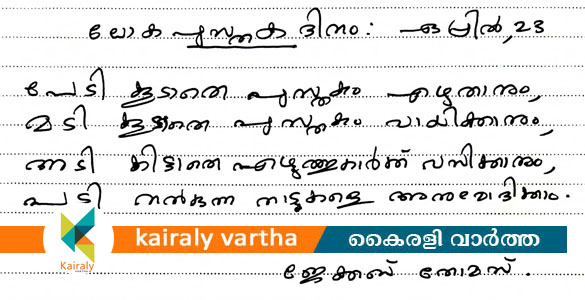 ലോക പുസ്തക ദിനം: ഏപ്രിൽ, 23
പേടി കൂടാതെ പുസ്തകം എഴുതാനും,
മടി കൂടാതെ പുസ്തകം വായിക്കാനും,
അടി കിട്ടാതെ എഴുത്തുകാർക്ക് വസിക്കാനും,
പടി നൽകുന്ന നാടുകളെ അനുമോദിക്കാം.
kairaly vartha കൈരളി വാർത്ത
Kairaly
ജേക്കബ് തോമസ്.